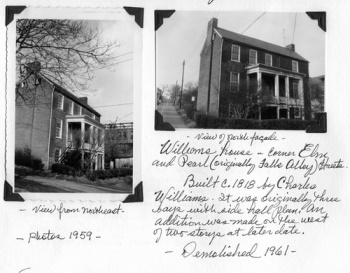 - View of North façade -
Williams house - corner Elm
and Pearl (originally Falls Alley) Streets.
Built c. 1818 by Charles
Williams - It was originally three
bays with side hall plan. An
addition was made on the west
of two storys at later date.
- Demolished 1961 -
- View from Northeast -
- Photos 1959 -